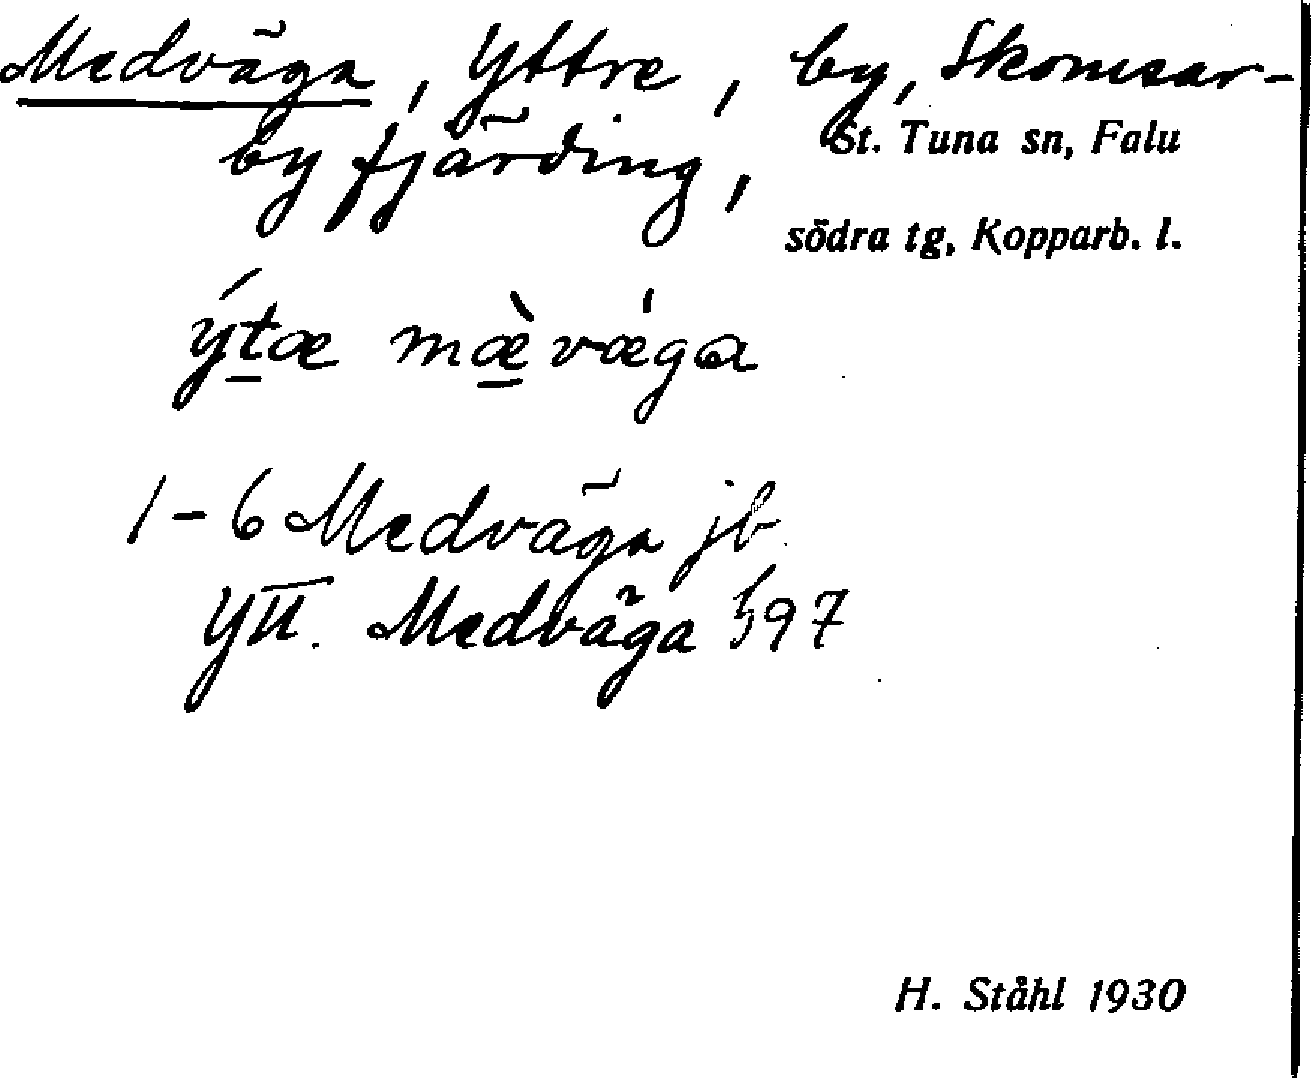 Medväga, Yttre, by, Skomsar-
by fjärding,
St. Tuna sn, Falu
södra tg, Kopparb. l.
ýt̠æ mæ̠̀vǽga
1-6 Medväga jb
Ytt. Medväga 597
H. Ståhl 1930